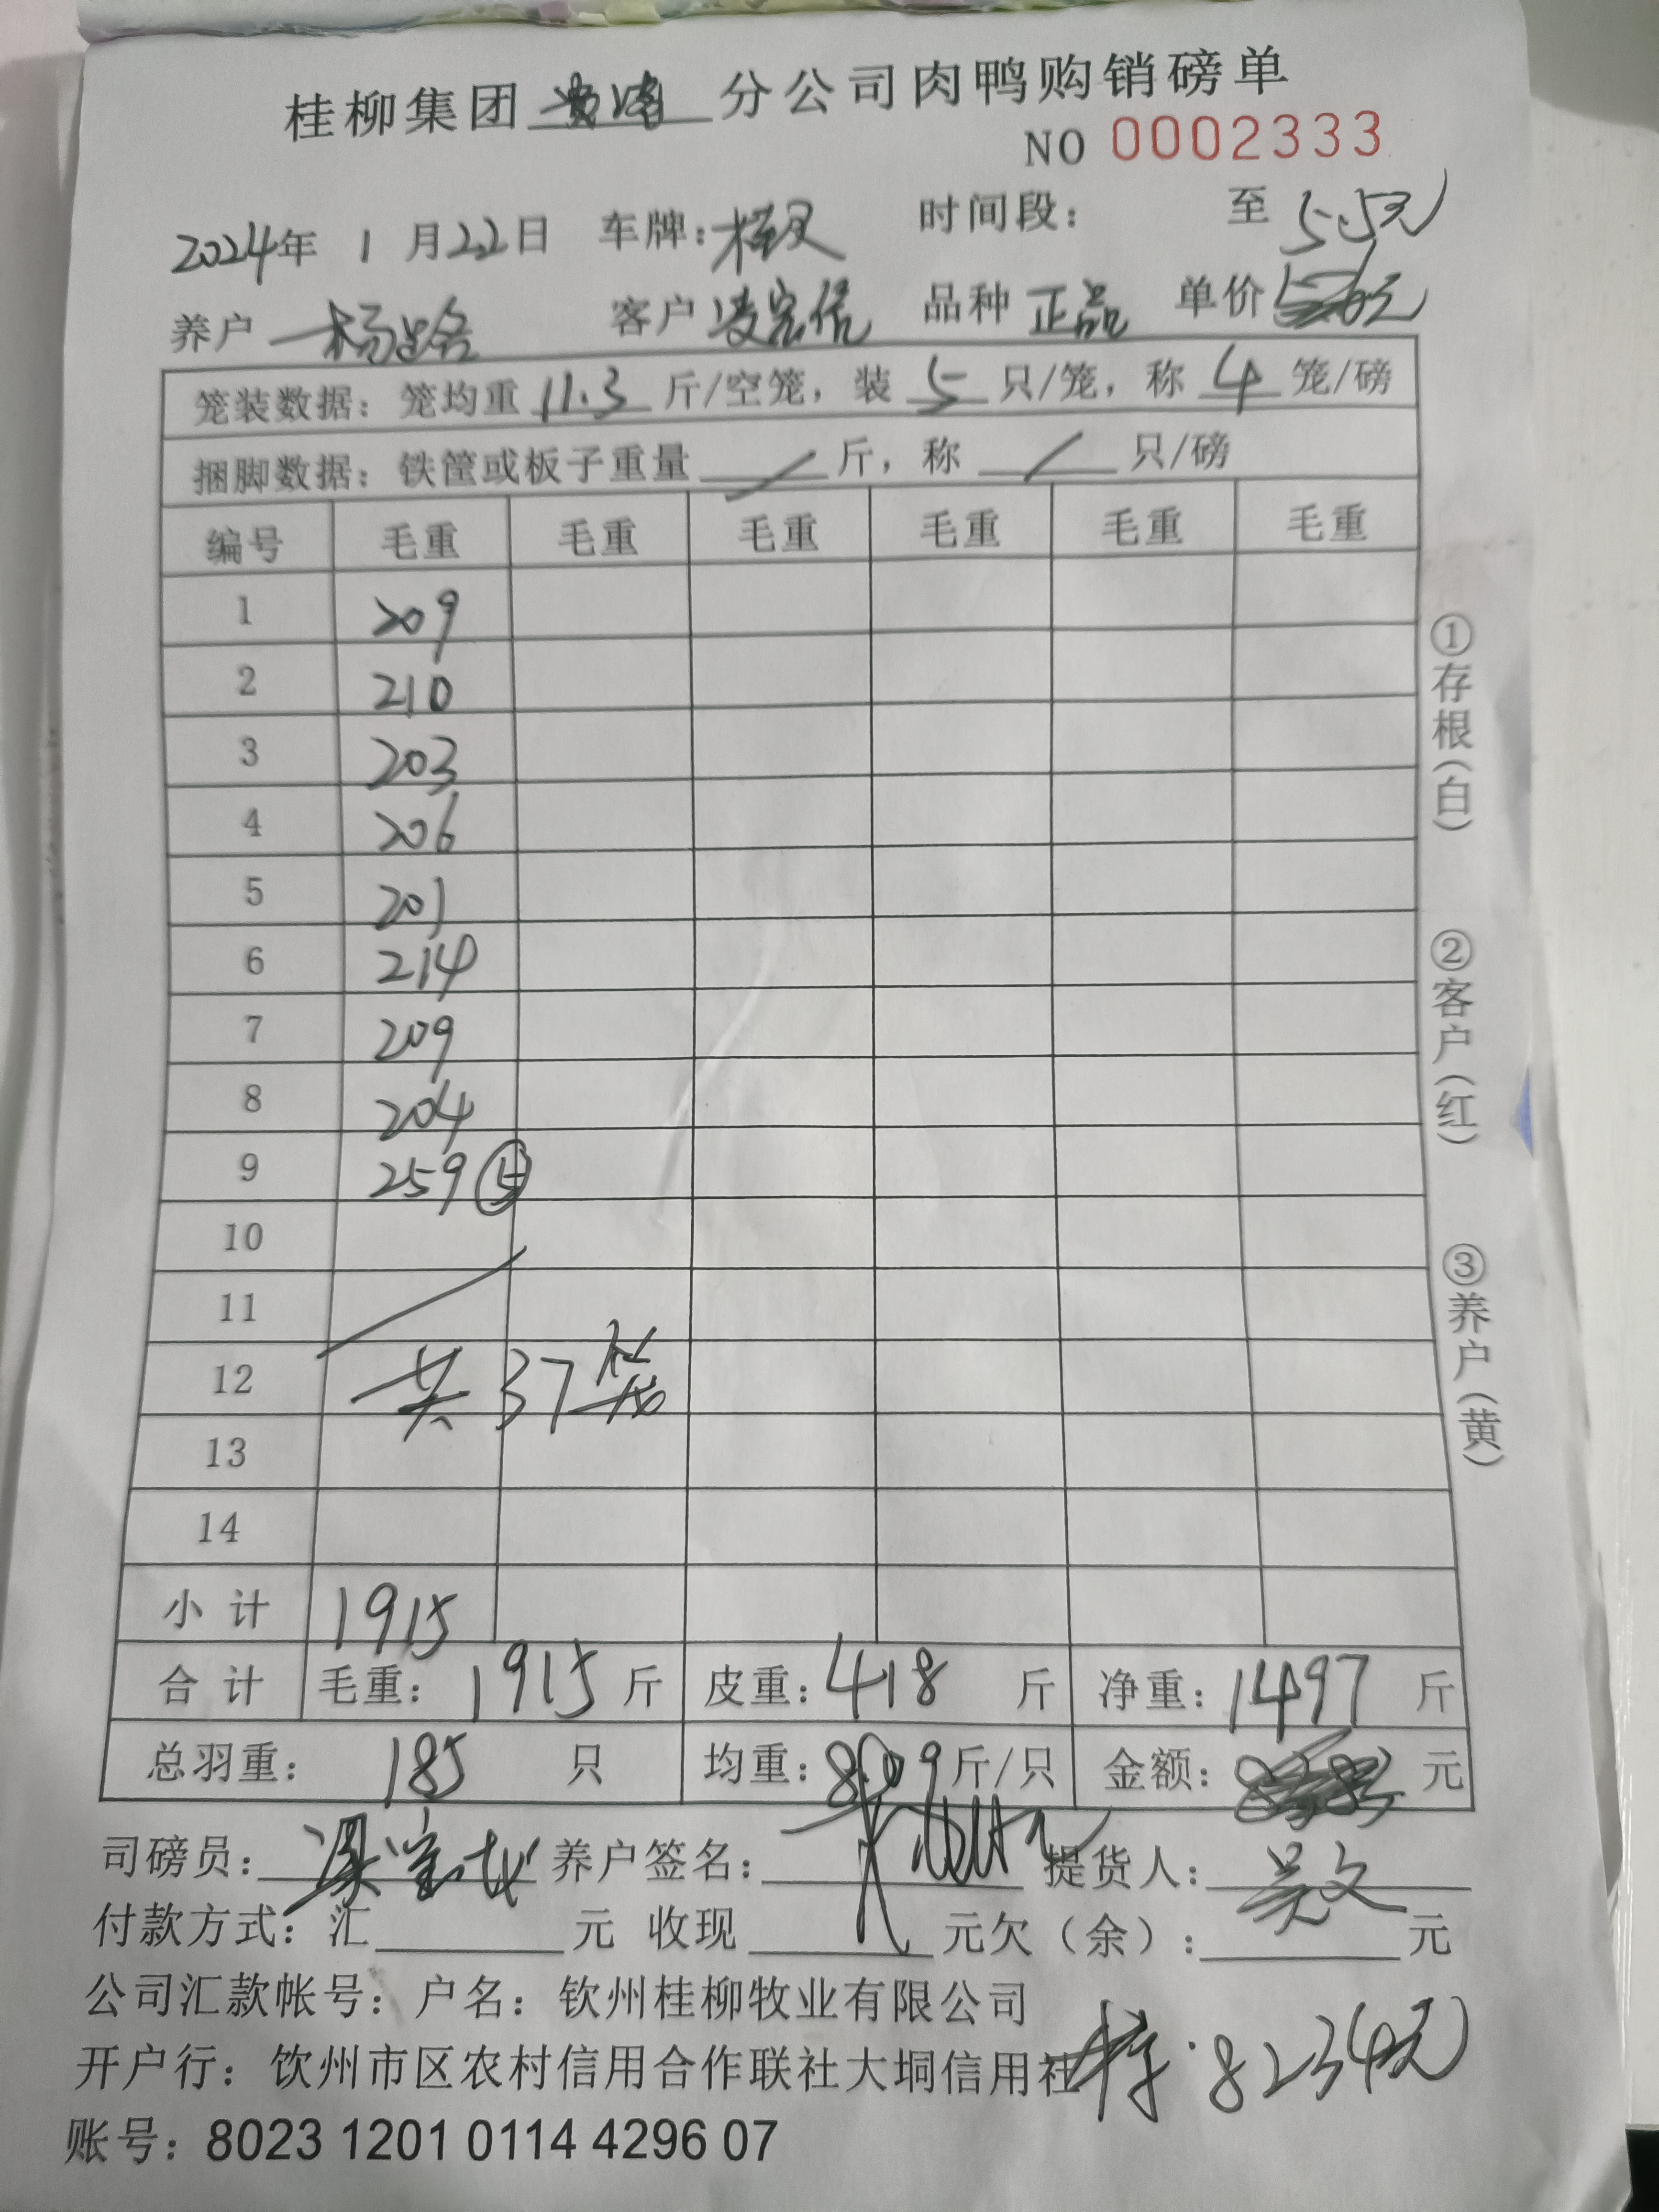 桂柳集团 分公司肉鸭购销磅单
NO 0002333
2024年 1 月22日 车牌: 时间段: 至 5.5元
养户 杨 客户 凌宏信 品种 正品 单价
笼装数据: 笼均重 11.3 斤/空笼, 装 5 只/笼, 称 4 笼/磅
捆脚数据: 铁筐或板子重量 / 斤, 称 / 只/磅
编号 毛重 毛重 毛重 毛重 毛重 毛重
1 209
2 210
3 203
4 206
5 201
6 214
7 209
8 204
9 259 ⑤
10
11
12 共37笼
13
14
小计 1915
合计 毛重: 1915 斤 皮重: 418 斤 净重: 1497 斤
总羽重: 185 只 均重: 8.09 斤/只 金额: 元
司磅员: 养户签名: 提货人: 吴文
付款方式: 汇 元 收现 元欠（余）: 元
公司汇款帐号: 户名: 钦州桂柳牧业有限公司
开户行: 饮州市区农村信用合作联社大垌信用社
8234元
账号: 8023 1201 0114 4296 07
①存根(白)
②客户(红)
③养户(黄)